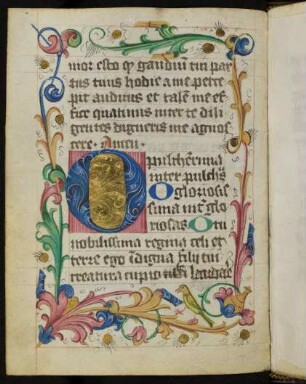 mor esto qͥ gaudiū tui par
tus tuus hodie a me perce
pit auduius et talē me ef
fice quatinus inter te dili
gentes digneris me agnos
cere · Amen ·
O pulcherrima
inter pulchras
O gloriosis
sima int̄ glo
riosas O tu
nobilissima regina celi et
terre ego ĩdigna filij tui
creatura cupio